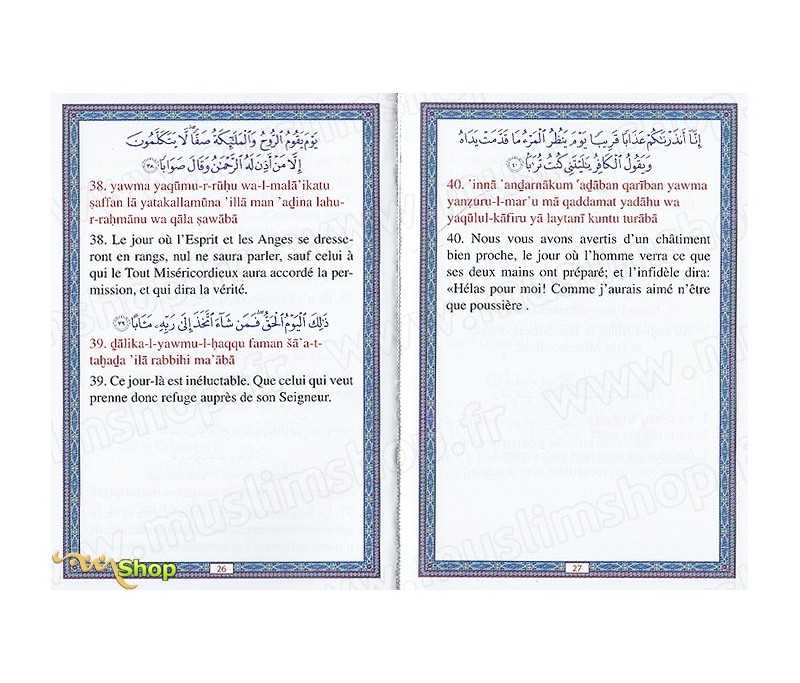 يَوْمَ يَقُومُ ٱلرُّوحُ وَٱلْمَلَـٰٓئِكَةُ صَفًّا ۖ لَّا يَتَكَلَّمُونَ
إِلَّا مَنْ أَذِنَ لَهُ ٱلرَّحْمَـٰنُ وَقَالَ صَوَابًا ۝٣٨
38. yawma yaqūmu-r-rūḥu wa-l-malā'ikatu
ṣaffan lā yatakallamūna 'illā man 'aḏina lahu-
r-raḥmānu wa qāla ṣawābā
38. Le jour où l'Esprit et les Anges se dresse-
ront en rangs, nul ne saura parler, sauf celui à
qui le Tout Miséricordieux aura accordé la per-
mission, et qui dira la vérité.
ذَٰلِكَ ٱلْيَوْمُ ٱلْحَقُّ ۖ فَمَن شَآءَ ٱتَّخَذَ إِلَىٰ رَبِّهِۦ مَـَٔابًا ۝٣٩
39. ḏālika-l-yawmu-l-ḥaqqu faman šā'a-t-
taḫaḏa 'ilā rabbihi ma'ābā
39. Ce jour-là est inéluctable. Que celui qui veut
prenne donc refuge auprès de son Seigneur.
26
Shop
إِنَّآ أَنذَرْنَـٰكُمْ عَذَابًا قَرِيبًا يَوْمَ يَنظُرُ ٱلْمَرْءُ مَا قَدَّمَتْ يَدَاهُ
وَيَقُولُ ٱلْكَافِرُ يَـٰلَيْتَنِى كُنتُ تُرَٰبًۢا ۝٤٠
40. 'innā 'anḏarnākum 'aḏāban qarīban yawma
yanẓuru-l-mar'u mā qaddamat yadāhu wa
yaqūlul-kāfiru yā laytanī kuntu turābā
40. Nous vous avons avertis d'un châtiment
bien proche, le jour où l'homme verra ce que
ses deux mains ont préparé; et l'infidèle dira:
«Hélas pour moi! Comme j'aurais aimé n'être
que poussière .
27
www.muslimshop.fr